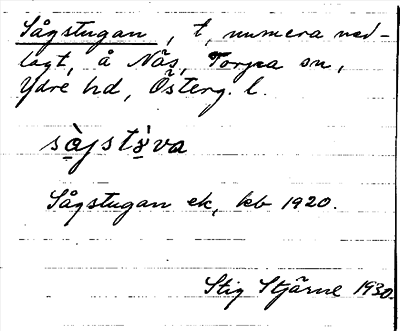 Sågstugan, t, numera ned-
lagt, å Näs, Torpa sn,
Ydre hd, Österg. l.
sågstùva
Sågstugan ek, kb 1920.
Stig Stjärne 1930.